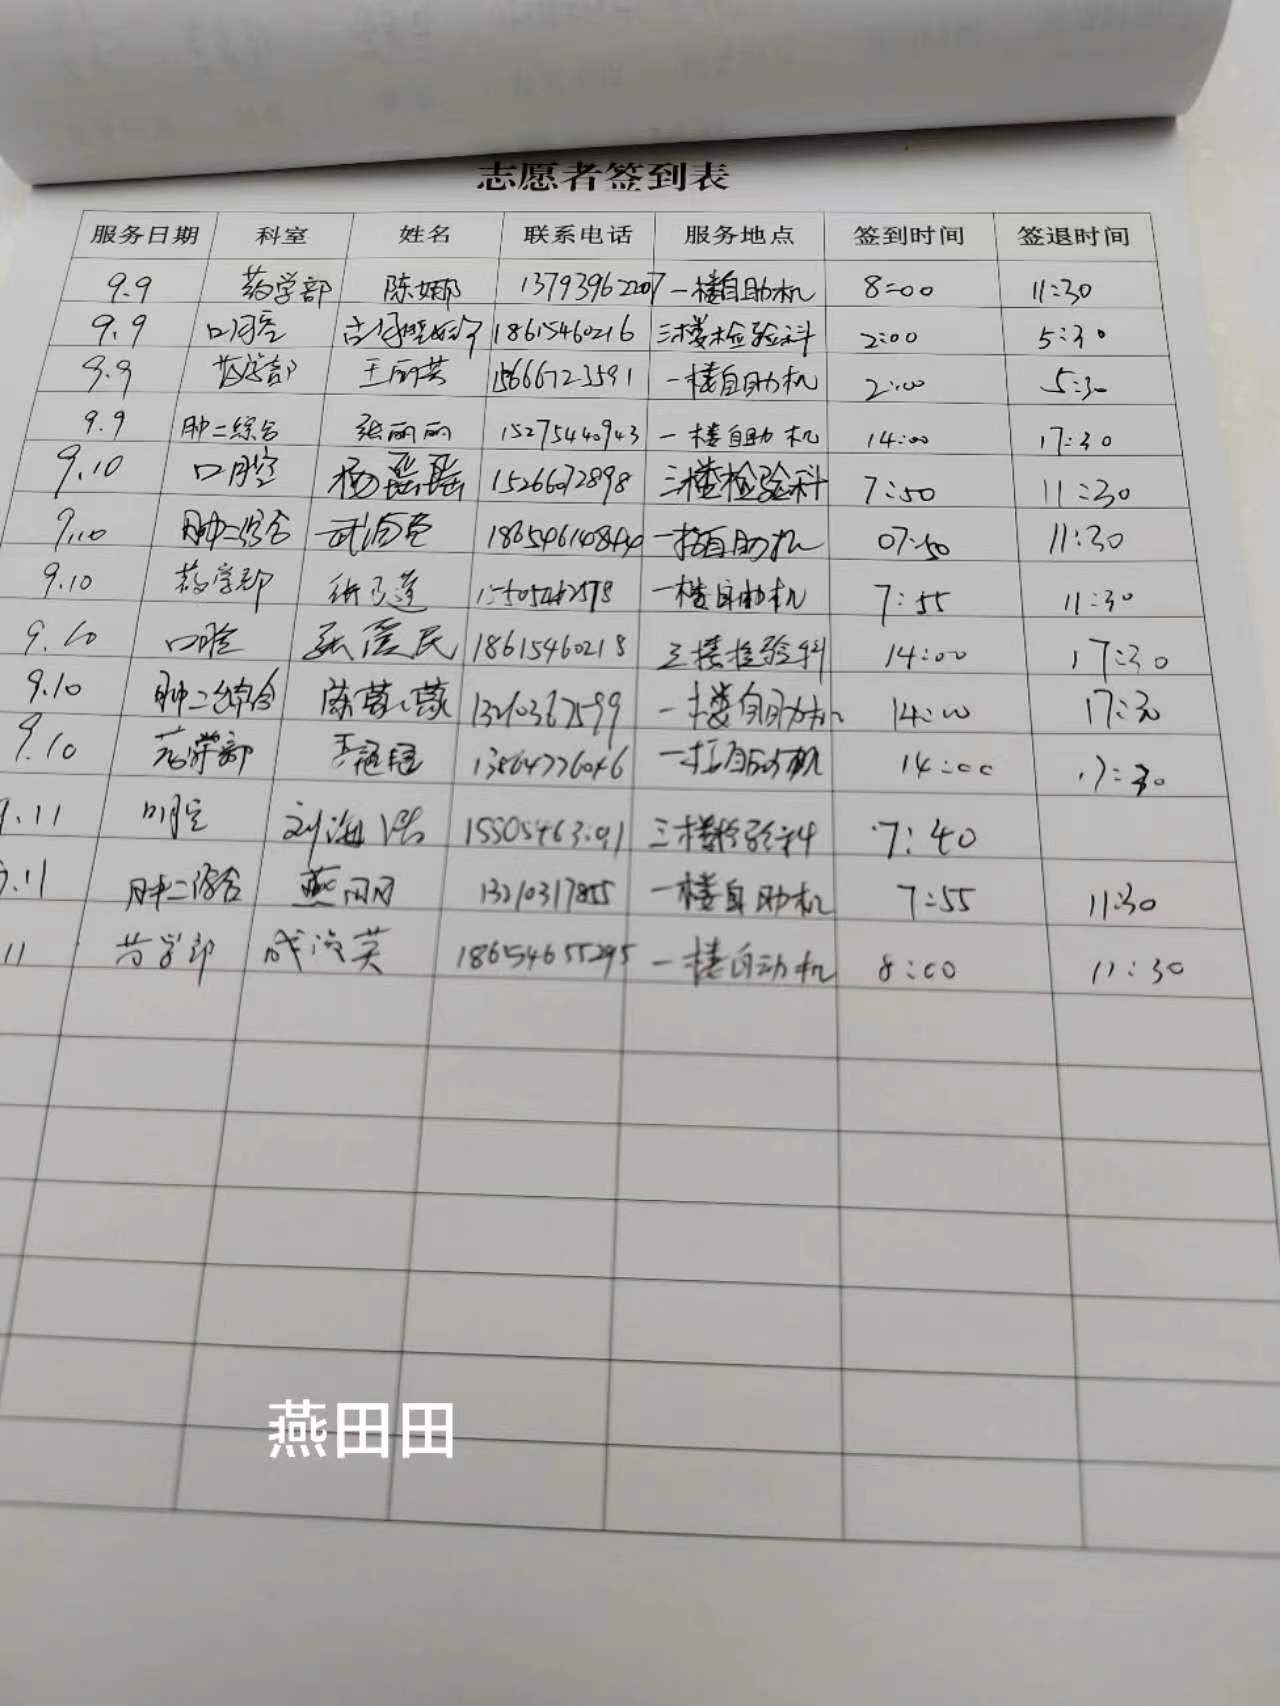 志愿者签到表
服务日期 科室 姓名 联系电话 服务地点 签到时间 签退时间
9.9 药学部 陈娜 13793962207 一楼自助机 8:00 11:30
9.9 口腔 18615460216 三楼检验科 2:00 5:30
9.9 药学部 王丽芸 15666723591 一楼自助机 2:00 5:30
9.9 肿二综合 张丽丽 15275440943 一楼自助机 14:00 17:30
9.10 口腔 杨磊磊 15266072898 三楼检验科 7:50 11:30
9.10 肿二综合 一楼自助机 07:50 11:30
9.10 药学部 一楼自助机 7:55 11:30
9.10 口腔 18615460218 三楼检验科 14:00 17:30
9.10 肿二综合 陈蒙蒙 一楼自助机 14:00 17:30
9.10 药学部 一楼自助机 14:00 17:30
9.11 口腔 三楼检验科 7:40
9.11 肿二综合 燕田田 13210317855 一楼自助机 7:55 11:30
11 药学部 18654655295 一楼自动机 8:00 11:30
燕田田